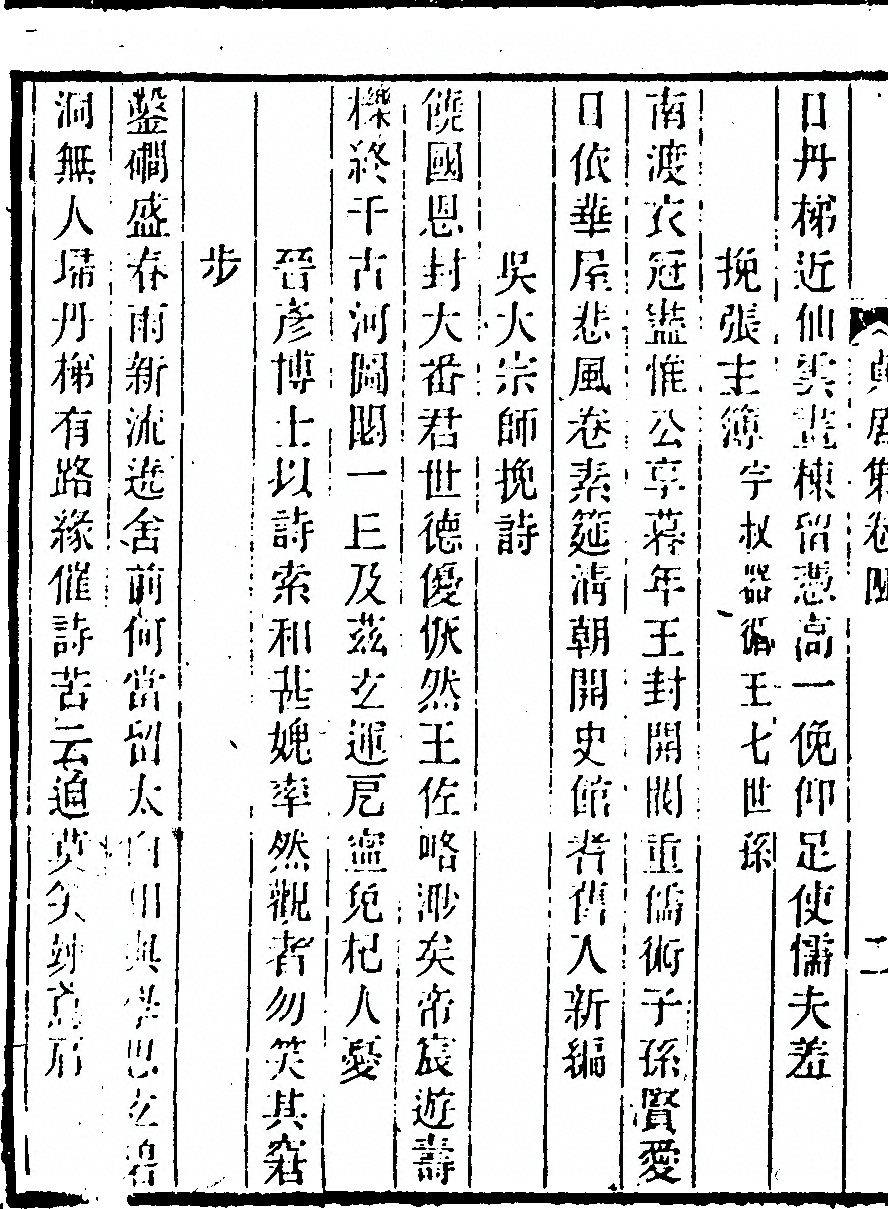 貞居集卷四 二
日丹梯近仙雲畫棟留憑高一俛仰足使懦夫羞
挽張主簿 字叔器循王七世孫
南渡衣冠盡惟公享暮年王封開閥重儒術子孫賢愛
日依華屋悲風卷素筵清朝開史館耆舊入新編
吳大宗師挽詩
饒國恩封大番君世德優恢然王佐略渺矣帝宸遊壽
櫟終千古河圖閟一丘及茲玄運厄寧免杞人憂
晉彥博士以詩索和甚媿率然觀者勿笑其窘
步
鑿磵盛春雨新流遶舍前何當留太白 與 思玄碧
洞無人埽丹梯有路緣催詩苦云道莫 竦 肩